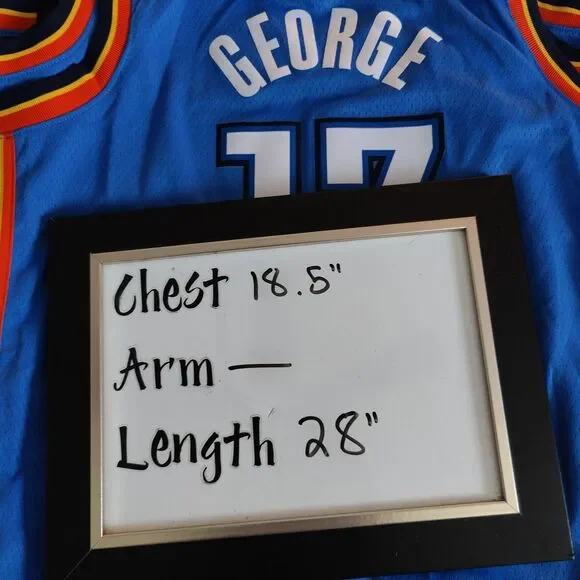 GEORGE
13
Chest 18.5"
Arm —
Length 28"